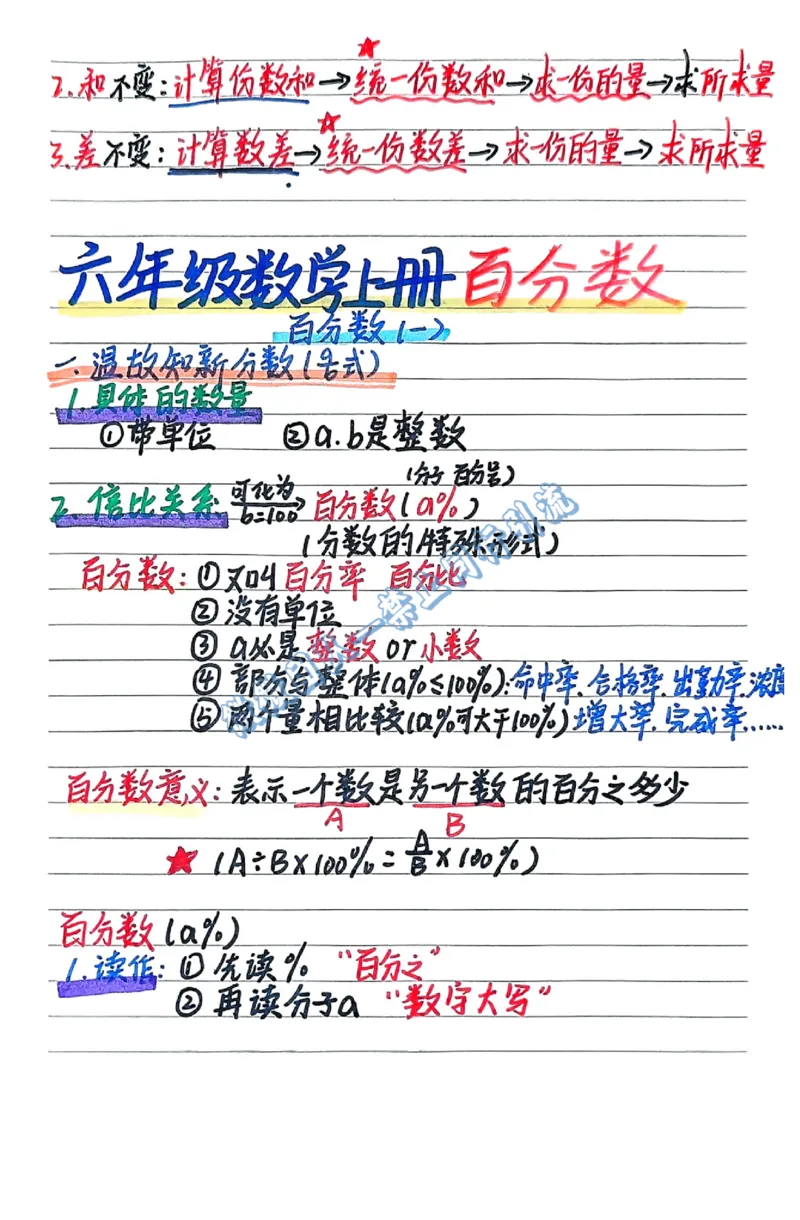 2.和不变:计算份数和→统一份数和→求一份的量→求所求量
3.差不变:计算数差→统一份数差→求一份的量→求所求量
六年级数学上册百分数
百分数(一)
一.温故知新分数(各式)
1.具体的数量
①带单位 ②a.b是整数
(分子 百分号)
2.倍比关系 可化为 b=100 → 百分数(a%)
(分数的特殊形式)
百分数:①又叫百分率 百分比
②没有单位
③a必是整数or小数
④部分与整体(a%≤100%):命中率.合格率.出勤率.浓度
⑤两个量相比较(a%可大于100%)增大率.完成率......
百分数意义:表示一个数是另一个数的百分之多少
A B
★(A÷B×100%=A/B×100%)
百分数(a%)
1.读作:①先读% “百分之”
②再读分子a “数字大写”